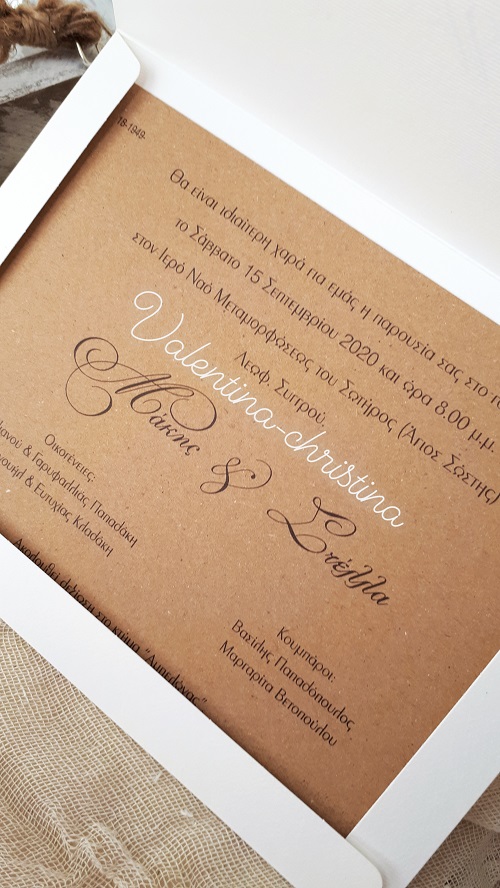 18-1949-
Θα είναι ιδιαίτερη χαρά για εμάς η παρουσία σας στο
το Σάββατο 15 Σεπτεμβρίου 2020 και ώρα 8.00 μ.μ.
στον Ιερό Ναό Μεταμορφώσεως του Σωτήρος (Άγιος Σώστης)
Λεωφ. Συγγρού.
Valentina-christina
Μάκης & Στέλλα
Οικογένειες:
& Γαρυφαλλιάς Παπαδάκη
& Ευτυχίας Κλαδάκη
Κουμπάροι:
Βασίλης Παπαδόπουλος
Μαργαρίτα Βετοπούλου
Ακολουθεί δεξίωση στο κτήμα